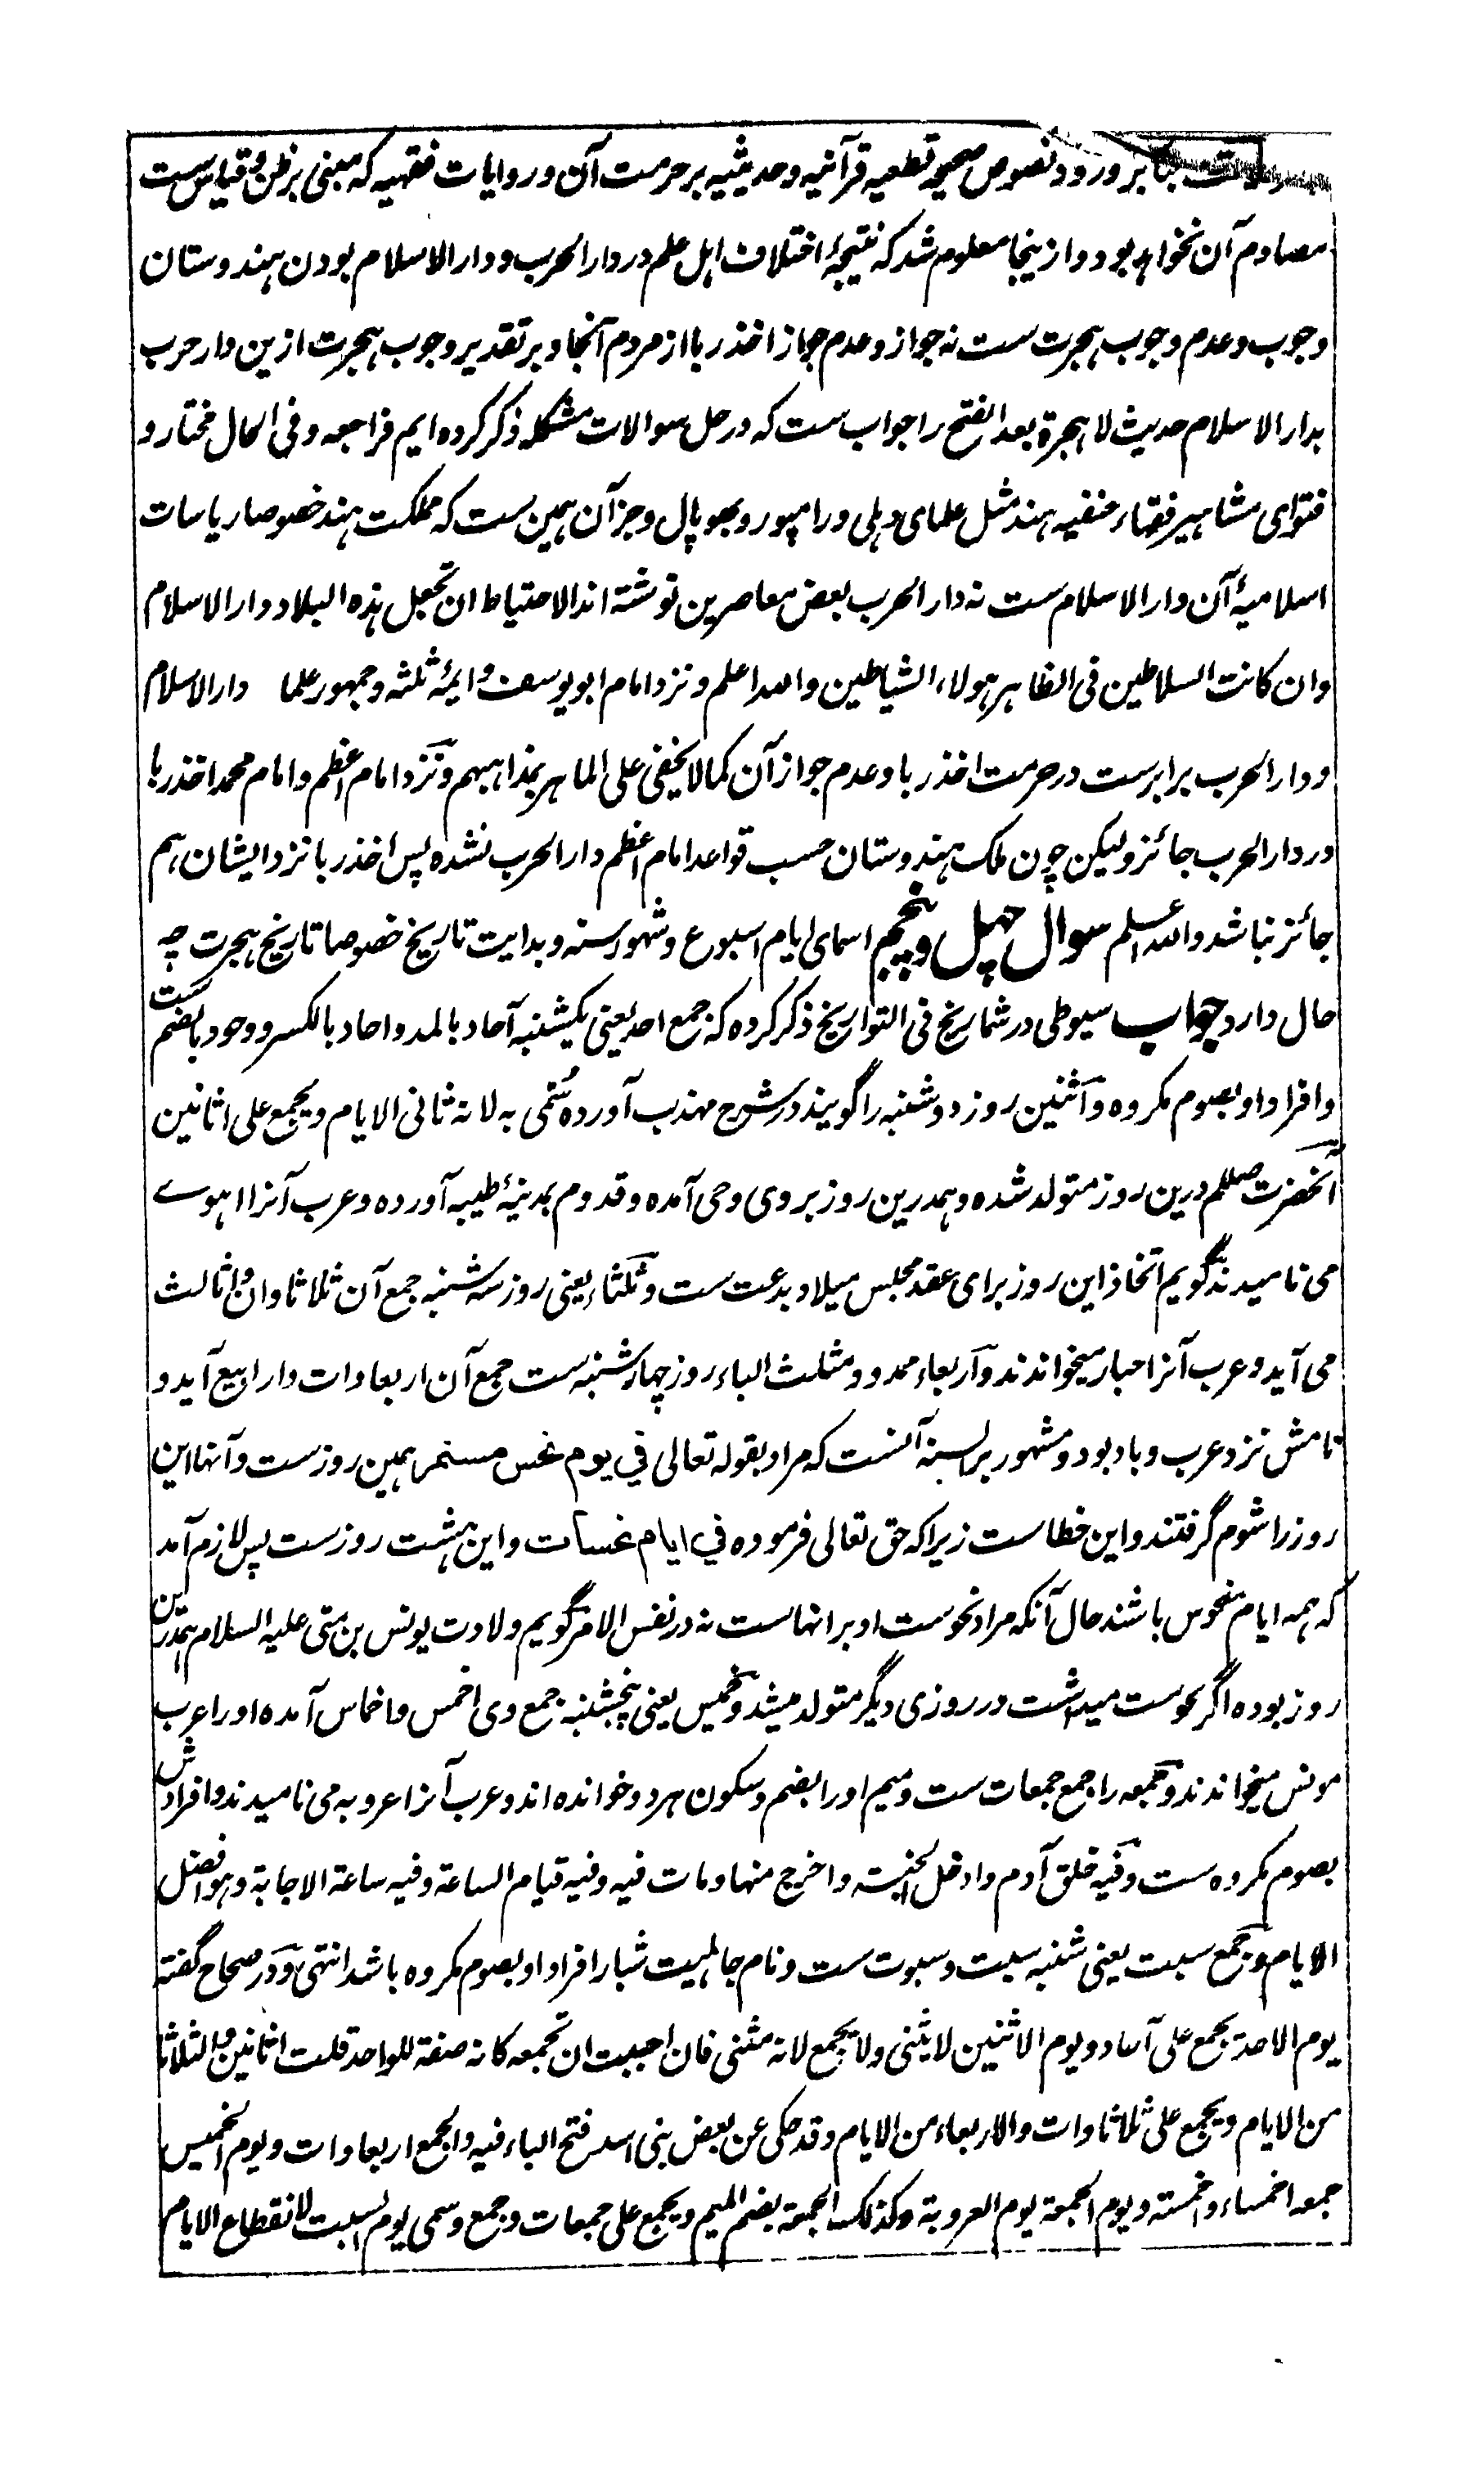 بنابر ورود نصوص صحیحه قطعیه قرآنیه وحدیثیه برحرمت آن وروایات فقهیه که مبنی برظن وقیاس ست
مصادم آن نخواهد بود وازینجا معلوم شد که نتیجهٔ اختلاف اهل علم در دارالحرب ودارالاسلام بودن هندوستان
وجوب وعدم وجوب هجرت ست نه جواز وعدم جواز اخذ ربا از مردم آنجا وبر تقدیر وجوب هجرت ازین دار حرب
بدارالاسلام حدیث لا هجرة بعد الفتح را جواب ست که در حل سوالات مشکله ذکر کرده ایم فراجعه وفی الحال مختار و
فتوای مشاهیر فقهاء حنفیه هند مثل علمای دهلی ورامپور وبھوپال وجز آن همین ست که مملکت هند خصوصا ریاسات
اسلامیهٔ آن دارالاسلام ست نه دارالحرب بعض معاصرین نوشته اند الاحتیاط ان نجعل هذه البلاد دارالاسلام
وان کانت السلاطین فی الظاهر هولاء الشیاطین والله اعلم ونزد امام ابو یوسف وائمهٔ ثلثه وجمهور علما دارالاسلام
ودارالحرب برابر ست در حرمت اخذ ربا وعدم جواز آن کما لا یخفی علی الماهر بمذاهبهم ونزد امام اعظم وامام محمد اخذ ربا
در دارالحرب جائز ولیکن چون ملک هندوستان حسب قواعد امام اعظم دارالحرب نشده پس اخذ ربا نزد ایشان هم
جائز نباشد والله اعلم سوال چهل وپنجم اسمای ایام اسبوع وشهور سنه وبدایت تاریخ خصوصا تاریخ هجرت چه
حال دارد جواب سیوطی در شماریخ فی التواریخ ذکر کرده که جمع احد یعنی یکشنبه آحاد بالمد واحاد بالکسر ووحود بالضم ست
وافراد او بصوم مکروه واثنین روز دوشنبه را گویند در شرح مهذب آورده سُمّی به لانه ثانی الایام ویجمع علی اثانین
آنحضرت صلعم درین روز متولد شده وهمدرین روز بروی وحی آمده وقدوم بمدینهٔ طیبه آورده وعرب آنرا اهوے
می نامیدند گویم اتخاذ این روز برای عقد مجلس میلاد بدعت ست وثلثاء یعنی روز سه شنبه جمع آن ثلاثاوان واثالث
می آید وعرب آنرا جبار میخواندند واربعاء ممدود ومثلث الباء روز چهارشنبه ست جمع آن اربعاوات وارابیع آید و
نامش نزد عرب دبار بود ومشهور بر السنه آنست که مراد بقوله تعالی في يوم نحس مستمر همین روز ست وآنها این
روز را شوم گرفتند واین خطاست زیرا که حق تعالی فرموده في ايام نحسات واین هشت روز ست پس لازم آمد
که همه ایام منحوس باشند حال آنکه مراد نحوست او بر انهاست نه در نفس الامر گویم ولادت یونس بن متی علیه السلام همدرین
روز بوده اگر نحوست میداشت در روزی دیگر متولد میشد وخمیس یعنی پنجشنبه جمع وی اخمس واخماس آمده او را عرب
مونس میخواندند وجمعه را جمع جمعات ست ومیم او را بضم وسکون هر دو خوانده اند وعرب آنرا عروبه می نامیدند وافرادش
بصوم مکروه ست وفیه خلق آدم وادخل الجنة واخرج منها ومات فیه وفیه قیام الساعة وفیه ساعة الاجابة وهو افضل
الایام وجمع سبت یعنی شنبه سبت وسبوت ست ونام جاهلیت شبار افراد او بصوم مکروه باشد انتهی ودر صحاح گفته
یوم الاحد یجمع علی آحاد ویوم الاثنین لا یثنی ولا یجمع لانه مثنی فان احببت ان تجمعه کانه صفة للواحد قلت اثانین والثلاثا
من الایام ویجمع علی ثلاثاوات والاربعاء من الایام وقد حکی عن بعض بنی اسد فتح الباء فیه والجمع اربعاوات ویوم الخمیس
جمعه اخمساء واخمسة ویوم الجمعة یوم العروبة وکذلک الجمعة بضم المیم ویجمع علی جمعات وجمع وسمی یوم السبت لانقطاع الایام